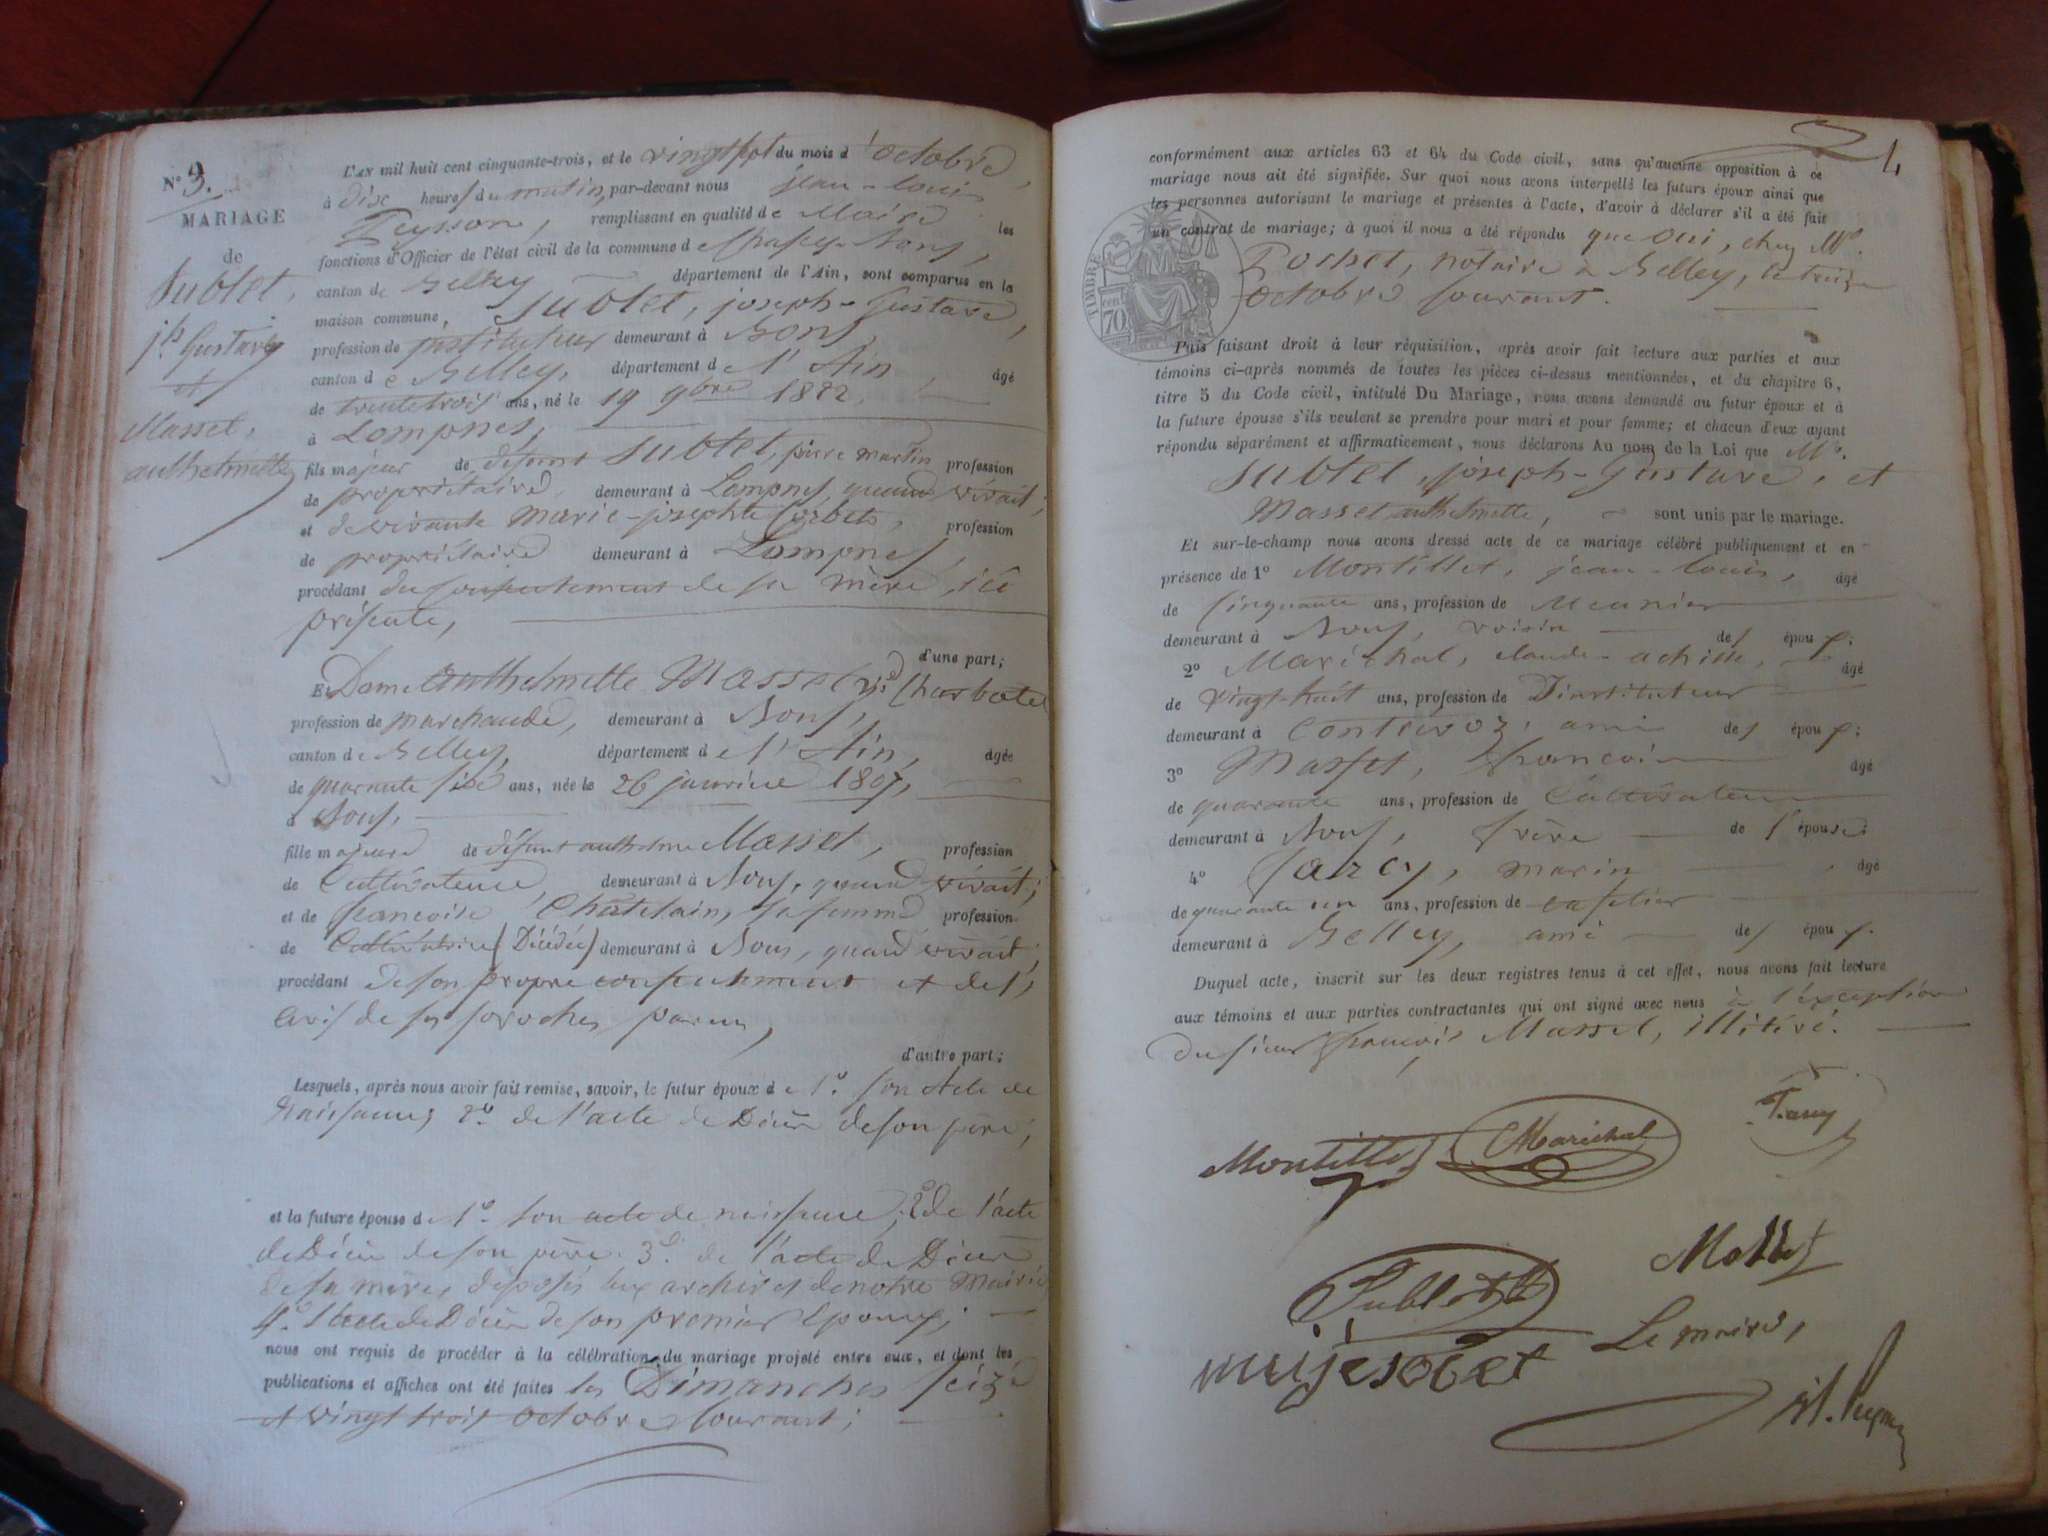 N° 9.
MARIAGE
de
Sublet,
jh Gustave
et
Masset,
anthelmette
L'AN mil huit cent cinquante-trois, et le vingt sept du mois d'octobre,
à dix heures du matin, par-devant nous jean-louis
Peysson, remplissant en qualité de Maire les
fonctions d'Officier de l'état civil de la commune d
canton de Belley département de l'Ain, sont comparus en la
maison commune, Sublet, joseph-Gustave,
profession de jnstituteur demeurant à Sons,
canton de Belley, département de l'Ain, âgé
de trente trois ans, né le 19 9bre 1822,
à Lompnes,
fils majeur de défunt Sublet, pierre martin profession
de propriétaire, demeurant à Lompnes, quand vivait;
et de vivante Marie-josephte profession
de propriétaire demeurant à Lompnes,
procédant du consentement de sa mère, ici
présente,
d'une part;
Et Dame Anthelmette Masset, ve Charbotel
profession de marchande, demeurant à Sons,
canton de Belley, département de l'Ain, âgée
de quarante six ans, née le 26 janvier 1807,
à Sons,
fille majeure de défunt anthelme Masset, profession
de Cultivateur, demeurant à Sons, quand vivait;
et de francoise Chatelain, sa femme profession
de Cultivatrice (Décédée) demeurant à Sons, quand vivait;
procédant de son propre consentement et de l'
avis de ses proches parens,
d'autre part;
Lesquels, après nous avoir fait remise, savoir, le futur époux de 1° son Acte de
Naissance; 2° de l'acte de Décès de son père;
et la future épouse de 1° son acte de naissance; 2° de l'acte
de Décès de son père. 3° de l'acte de Décès
de sa mère, déposés aux archives de notre Mairie
4° l'acte de Décès de son premier Epoux;
nous ont requis de procéder à la célébration du mariage projeté entre eux, et dont les
publications et affiches ont été faites les Dimanches seize
et vingt trois octobre courant;
4
conformément aux articles 63 et 64 du Code civil, sans qu'aucune opposition à ce
mariage nous ait été signifiée. Sur quoi nous avons interpellé les futurs époux ainsi que
les personnes autorisant le mariage et présentes à l'acte, d'avoir à déclarer s'il a été fait
un contrat de mariage; à quoi il nous a été répondu que oui, chez Me
Pochet, notaire à Belley, le treize
octobre courant.
TIMBRE
70 cent
Puis faisant droit à leur réquisition, après avoir fait lecture aux parties et aux
témoins ci-après nommés de toutes les pièces ci-dessus mentionnées, et du chapitre 6,
titre 5 du Code civil, intitulé Du Mariage, nous avons demandé au futur époux et à
la future épouse s'ils veulent se prendre pour mari et pour femme; et chacun d'eux ayant
répondu séparément et affirmativement, nous déclarons Au nom de la Loi que Mr.
Sublet, joseph-Gustave, et
Masset anthelmette, sont unis par le mariage.
Et sur-le-champ nous avons dressé acte de ce mariage célébré publiquement et en
présence de 1° Montillet, jean-louis, âgé
de cinquante ans, profession de Meunier
demeurant à Sons, voisin des époux;
2° Maréchal, claude-achille, âgé
de vingt-huit ans, profession de D'instituteur
demeurant à Contrevoz, ami des époux;
3° Masset, françois âgé
de quarante ans, profession de Cultivateur
demeurant à Sons, frère de l'épouse;
4° marin âgé
de quarante un ans, profession de cafetier
demeurant à Belley, ami des époux.
Duquel acte, inscrit sur les deux registres tenus à cet effet, nous avons fait lecture
aux témoins et aux parties contractantes qui ont signé avec nous à l'exception
du sieur françois Masset, illitéré.
Montillet Maréchal
Sublet
Masset
Le maire,